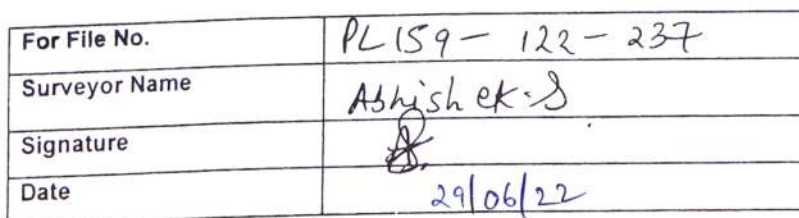 For File No. PL159 - 122 - 237
Surveyor Name Abhishek.S
Signature
Date 29/06/22